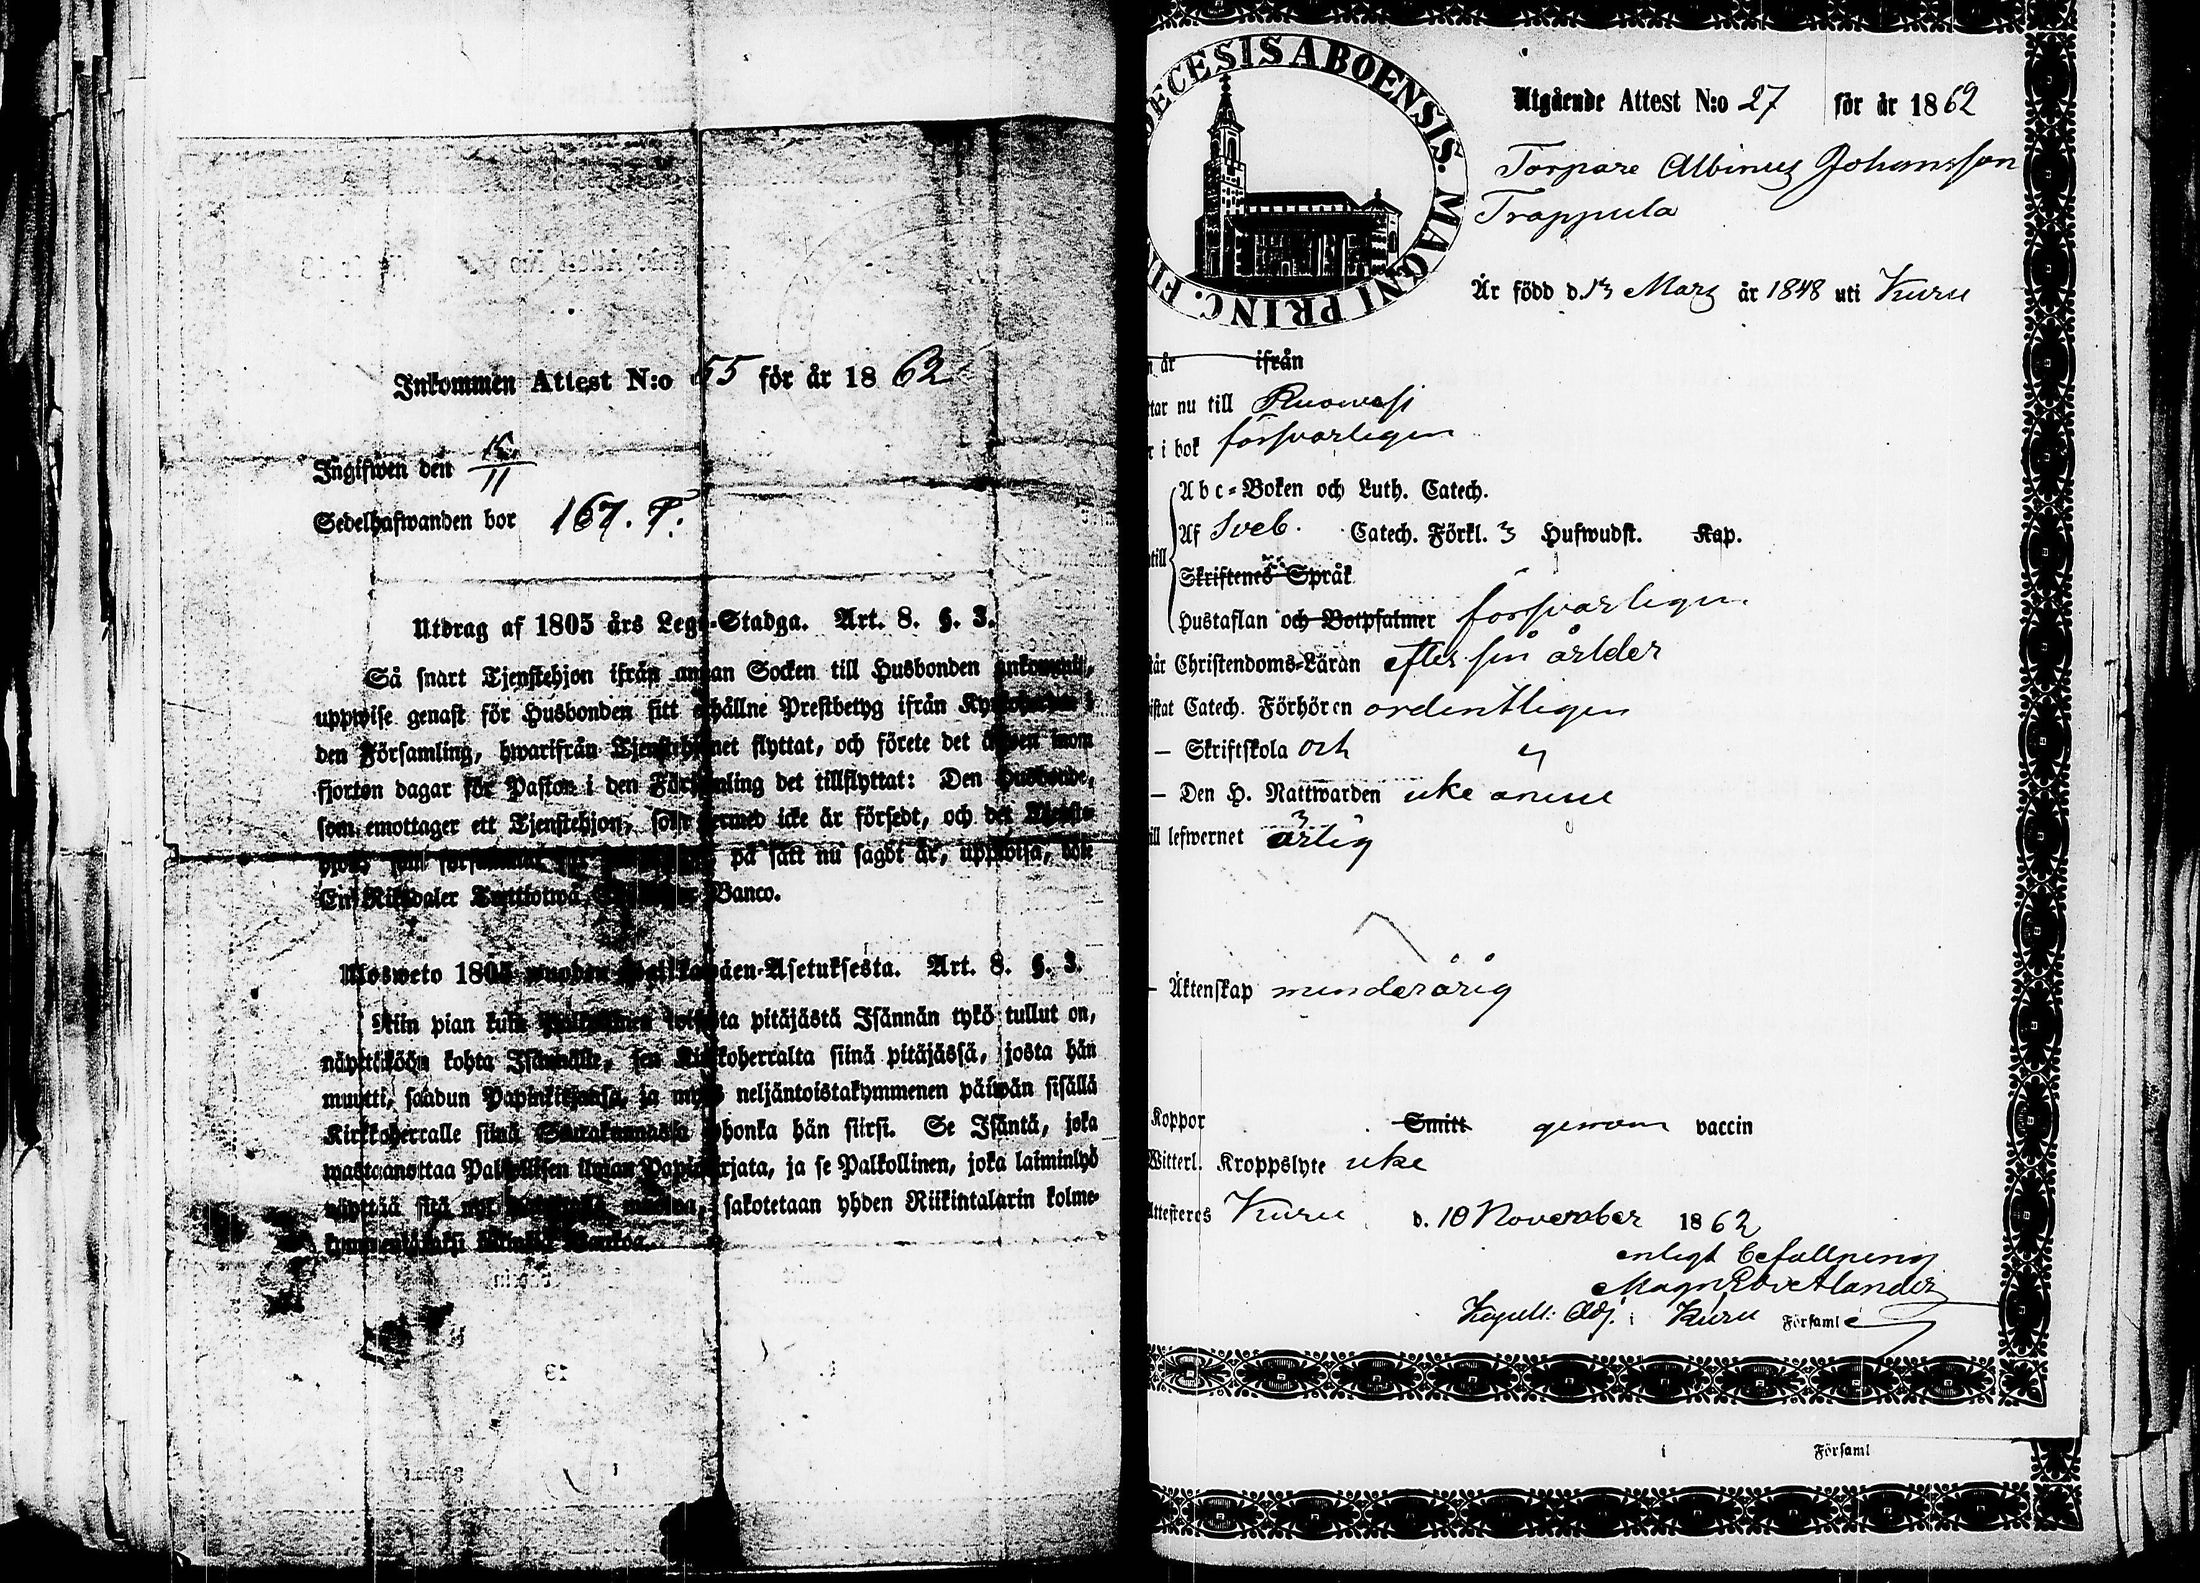 Inkommen Attest N:o 55 för år 1862
Ingifwen den /11
Sedelhafwanden bor 167. F.
Utdrag af 1805 års Lego-Stadga. Art. 8. §. 3.
Så snart Tjenstehjon ifrån annan Socken till Husbonden ankommit,
uppwise genast för Husbonden sitt erhållne Prestbetyg ifrån Kyrkoherden i
den Församling, hwarifrån Tjenstehjonet flyttat, och förete det äfwen inom
fjorton dagar för Pastor i den Församling det tillflyttat: Den Husbonde,
som emottager ett Tjenstehjon, som dermed icke är försedt, och det Tjenste-
hjon, som på sätt nu sagdt är, uppwisa, böte
En Riksdaler Trettiotwå Banco.
Ulosweto 1805 wuoden Asetuksesta. Art. 8. §. 3.
Niin pian kuin Palkollinen toisesta pitäjästä Isännän tykö tullut on,
näyttäköön kohta Isännälle, sen Kirkkoherralta siinä pitäjässä, josta hän
muutti, saadun Papinkirjansa, ja myös neljäntoistakymmenen päiwän sisällä
Kirkkoherralle siinä Seurakunnassa johonka hän siirsi. Se Isäntä, joka
wastaanottaa Palkollisen ilman Papinkirjata, ja se Palkollinen, joka laiminlyö
näyttää sitä sakotetaan yhden Riikintalarin kolme-
DIECESIS ABOENSIS. MAGNI PRINC. FI
Utgående Attest N:o 27 för år 1862
Torpare Albinus Johansson
Trappula
Är född d. 13 Mars år 1848 uti Kuru
n år ifrån
ttar nu till Ruowesi
r i bok försvarligen
Abc-Boken och Luth. Catech.
Af Sveb. Catech. Förkl. 3 Hufwudst. Kap.
till
Skriftenes Språk
Hustaflan och Botpsalmer försvarligen
tår Christendoms-Läran efter sin ålder
istat Catech. Förhören ordentligen
– Skriftskola och
– Den H. Nattwarden icke ännu
ill lefwernet ärlig
– Äktenskap minderårig
Koppor Smitt genom vaccin
Witterl. Kroppslyte icke
Attesteras Kuru d. 10 November 1862
enligt befallning
Magn
Kapell: Adj. i Kuru Församl
i Församl